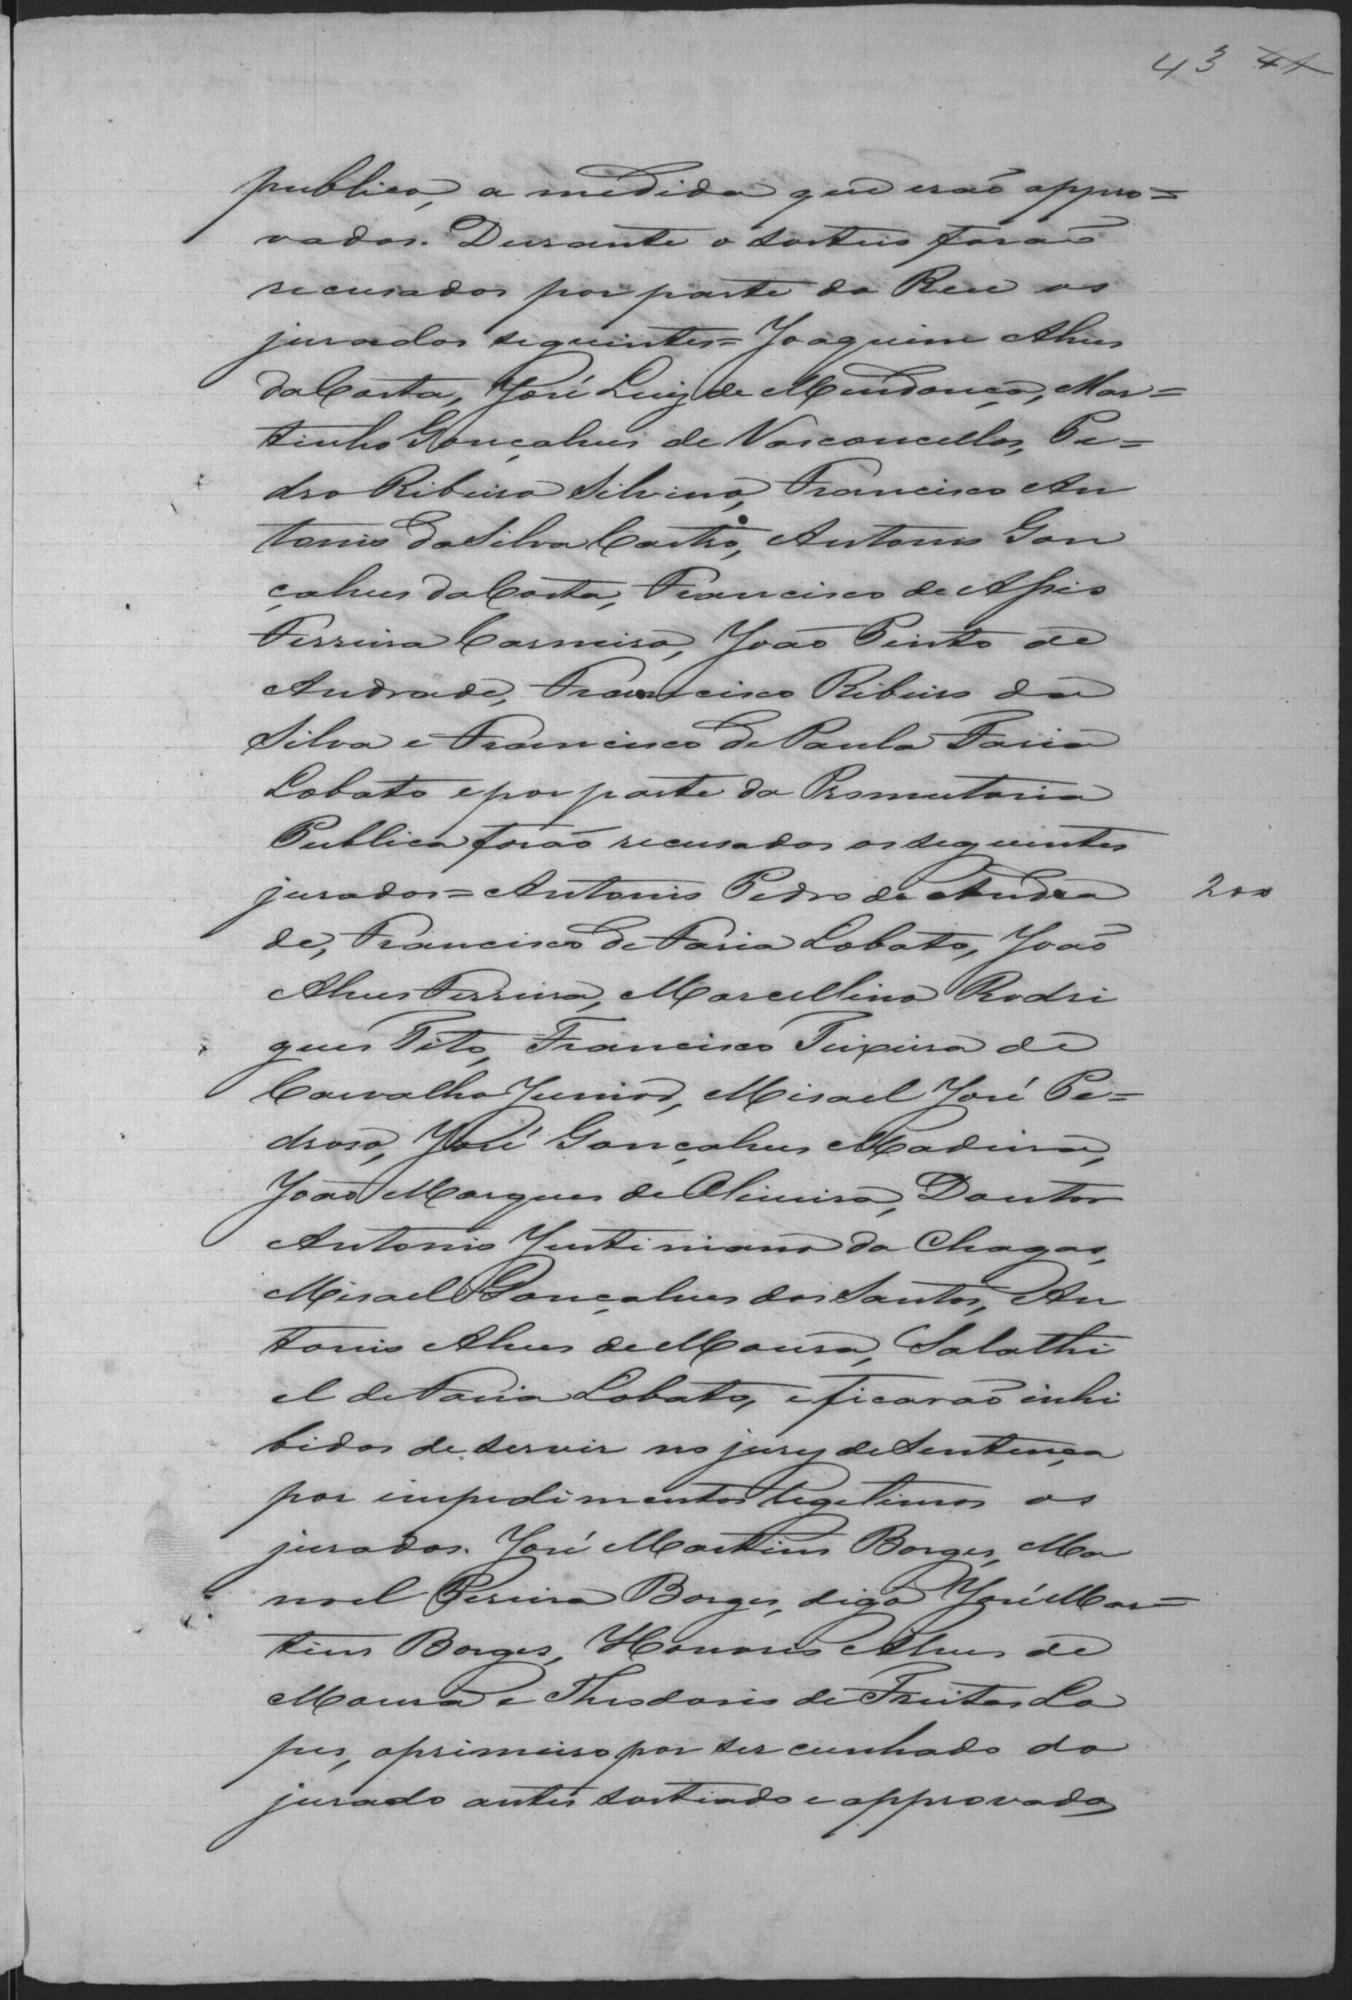 43 41
publico, a medida que erão appro=
vados. Durante o sorteio forão
recusados por parte do Reu os
jurados seguintes= Joaquim Alves
da Costa, José Luiz de Mendonça, Mar=
tinho Gonçalves de Vasconcellos, Pe=
dro Ribeiro Silvino, Francisco An
tonio da Silva Castro, Antonio Gon
çalves da Costa, Francisco de Assis
Ferreira Carneiro, João Pinto de
Andrade, Francisco Ribeiro da
Silva e Francisco de Paula Faria
Lobato e por parte da Promutoria
Publica forão recusados os seguintes
jurados= Antonio Pedro de Andra
200
de, Francisco de Faria Lobato, João
Alves Ferreira, Marcellino Rodri
gues Tito, Francisco Teixeira de
Carvalho Junior, Misael José Pe=
droso, José Gonçalves Madeira,
João Marques de Oliveira, Doutor
Antonio Justiniano da Chagas,
Misael Gonçalves dos Santos, An
tonio Alves de Moura, Salathi
el de Faria Lobato, e ficarão inhi
bidos de servir no jury de Sentença
por impedimentos legitimos os
jurados. José Martins Borges, Ma
noel Pereira Borges, digo José Mar=
tins Borges, Honorio Alves de
Moura e Theodorio de Freitas Lo
pes, o primeiro por ser cunhado do
jurado antes sortiado e approvado